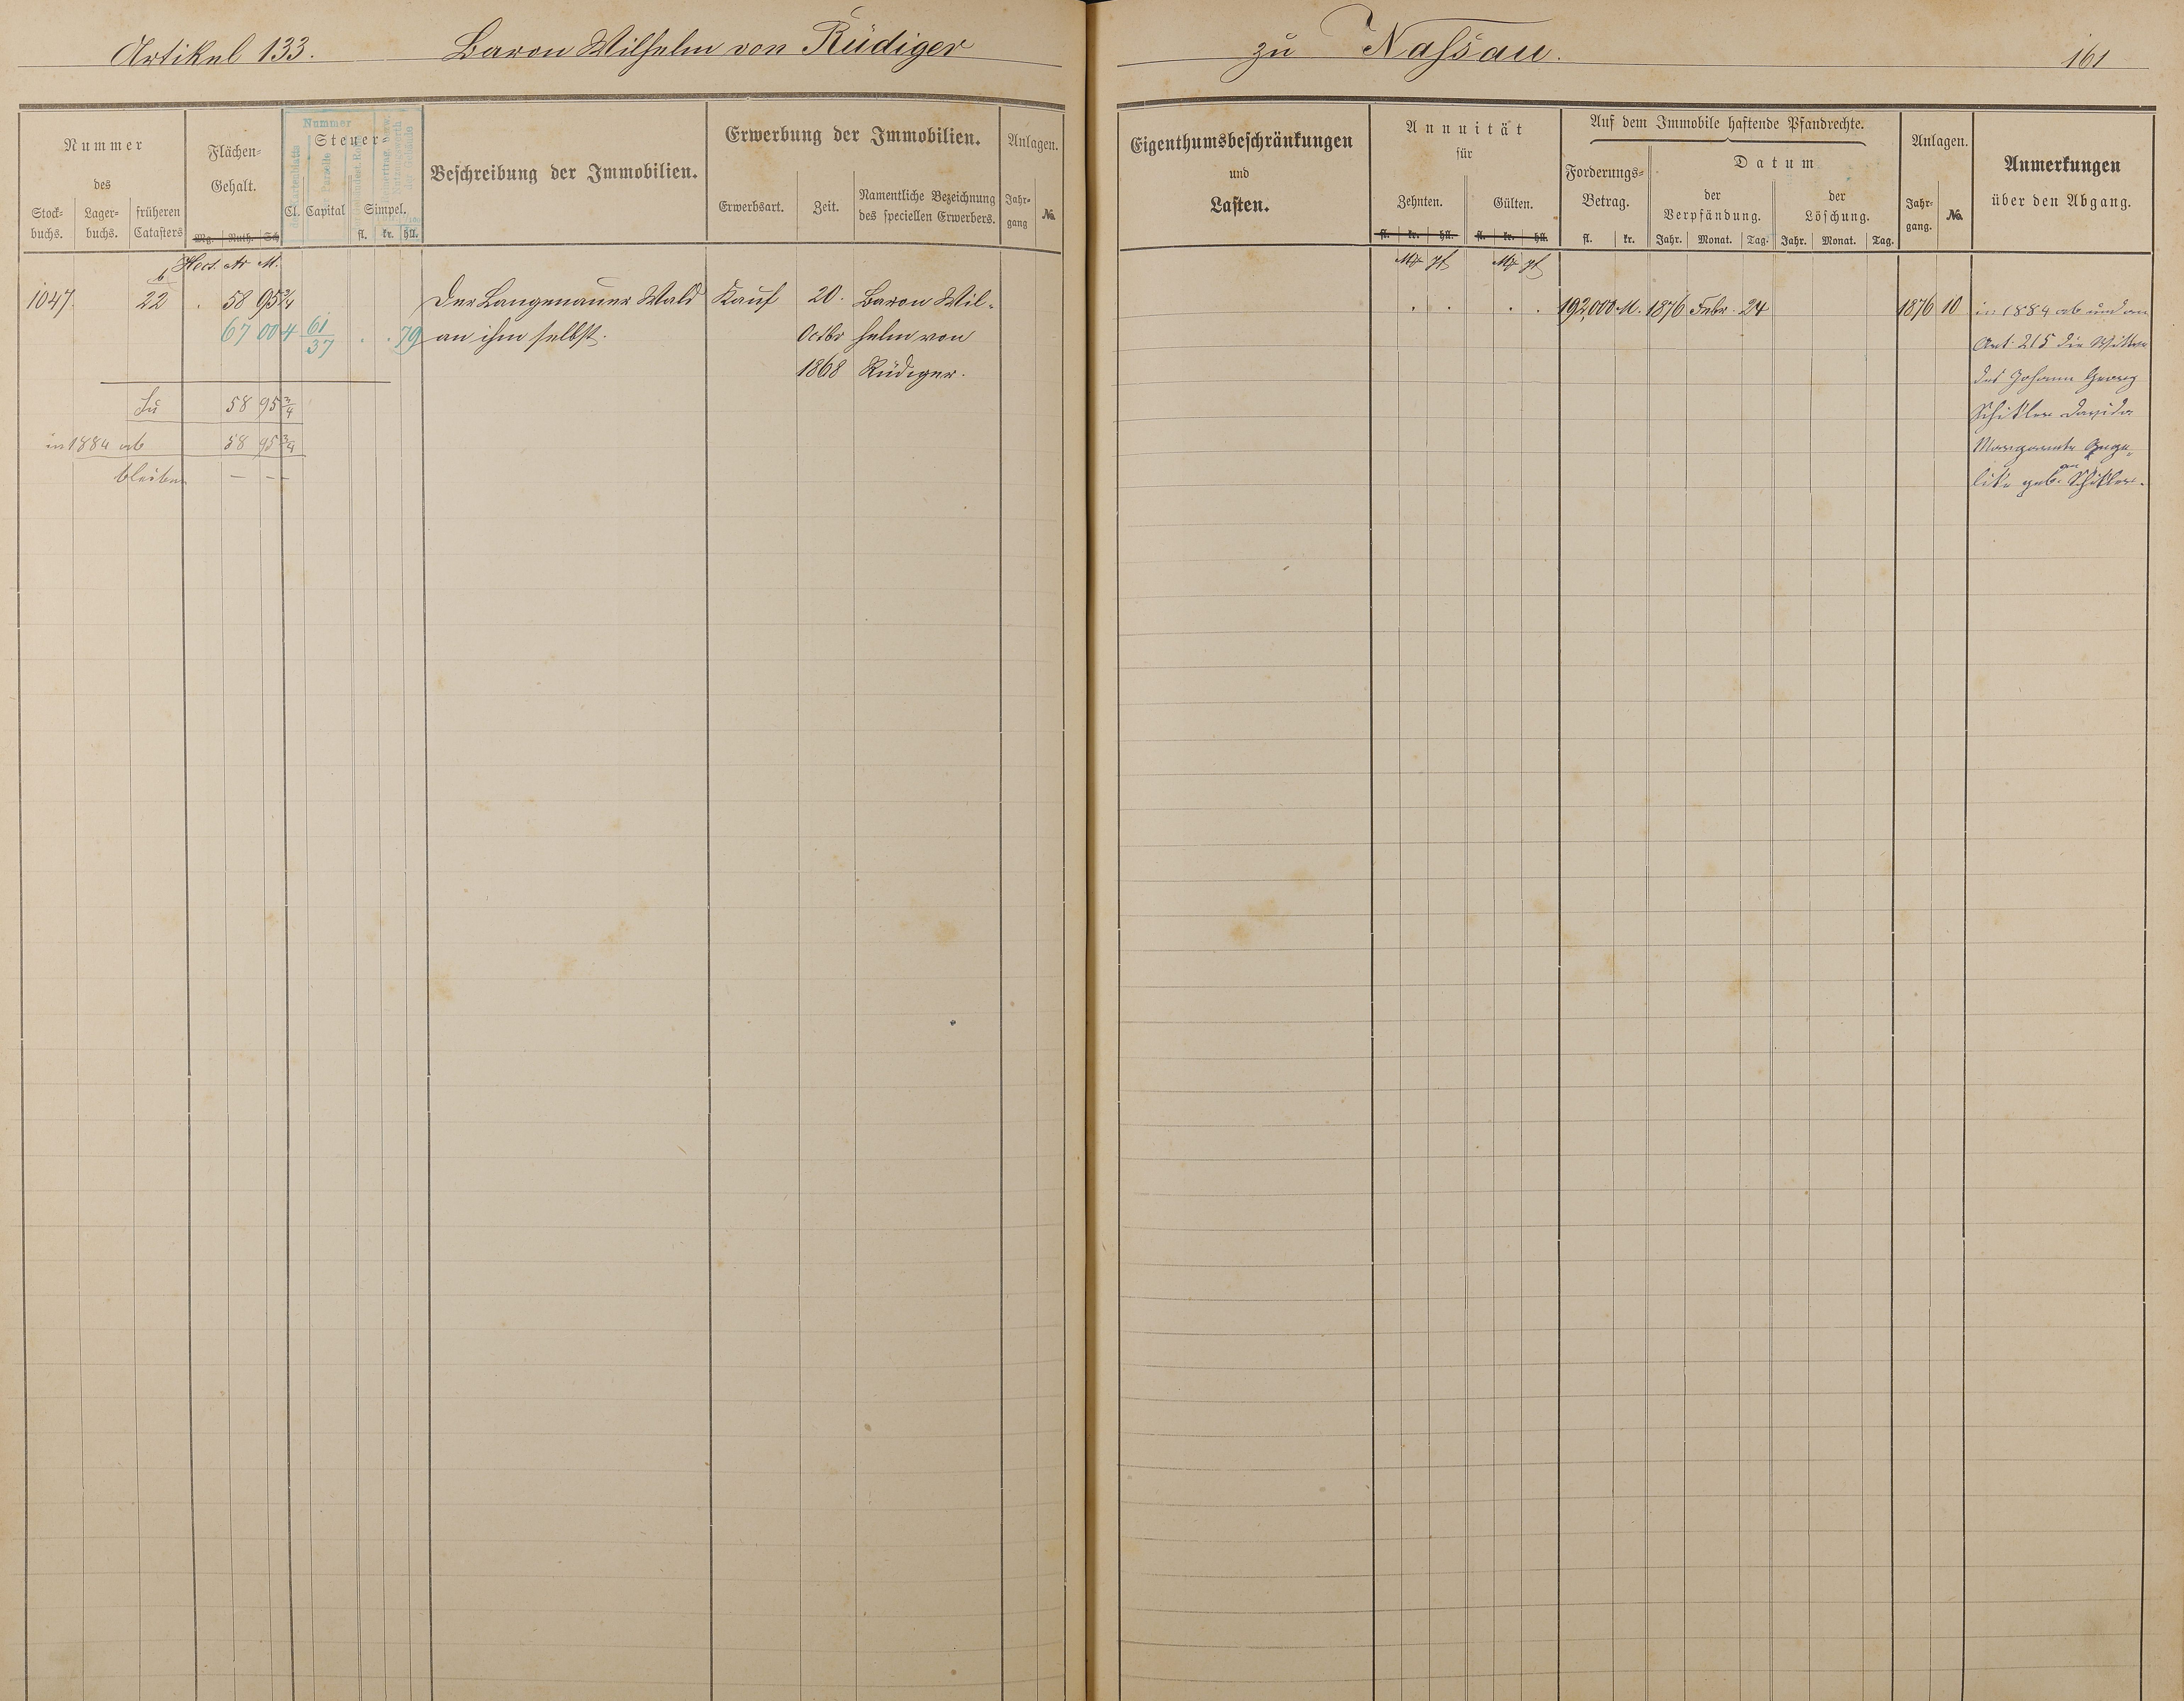 Artikel 133. Baron Wilhelm von Rüdiger zu Nassau. 161
Nummer
des
Stock-
buchs.
Lager-
buchs.
früheren
Catasters
Flächen-
Gehalt.
Mg. Ruth. Sch
Nummer
Steuer-
Parzelle
der Gebäude
Cl. Capital Simpel.
fl. kr. hll.
Beschreibung der Immobilien.
Erwerbung der Immobilien.
Erwerbsart. Zeit.
Namentliche Bezeichnung
des speciellen Erwerbers.
Anlagen.
Jahr-
gang
No.
Eigenthumsbeschränkungen
und
Lasten.
Annuität
für
Zehnten. Gülten.
fl. kr. hll. fl. kr. hll.
Auf dem Immobile haftende Pfandrechte.
Forderungs-
Betrag.
fl. kr.
Datum
der
Verpfändung.
Jahr. Monat. Tag.
der
Löschung.
Jahr. Monat. Tag.
Anlagen.
Jahr-
gang.
No.
Anmerkungen
über den Abgang.
Hect. Ar M.
1047. 22 58 95 3/4 Der Langenauer Wald Kauf 20. Baron Wil-
67 00 4 61/37 79 an ihm selbst. Octbr helm von
1868 Rüdiger.
58 95 3/4
in 1884 ab 58 95 3/4
bleiben — — —
192,000 M. 1876 Febr. 24 1876 10
in 1884 ab und an
Art. 215 die Wittwe
des Johann Georg
Schikler Davida
Margarethe
geb. Schikler.